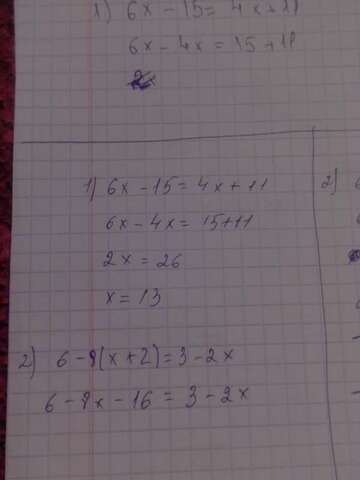 1) 6x - 15 = 4x + 11
6x - 4x = 15 + 11
1) 6x - 15 = 4x + 11
6x - 4x = 15 + 11
2x = 26
x = 13
2) 6 - 8(x + 2) = 3 - 2x
6 - 8x - 16 = 3 - 2x
2)